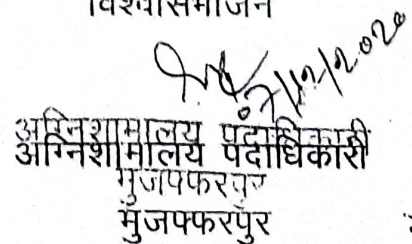 विश्वासभाजन
07/12/2020
अग्निशामालय पदाधिकारी
अग्निशामालय पदाधिकारी
मुजफ्फरपुर
मुजफ्फरपुर